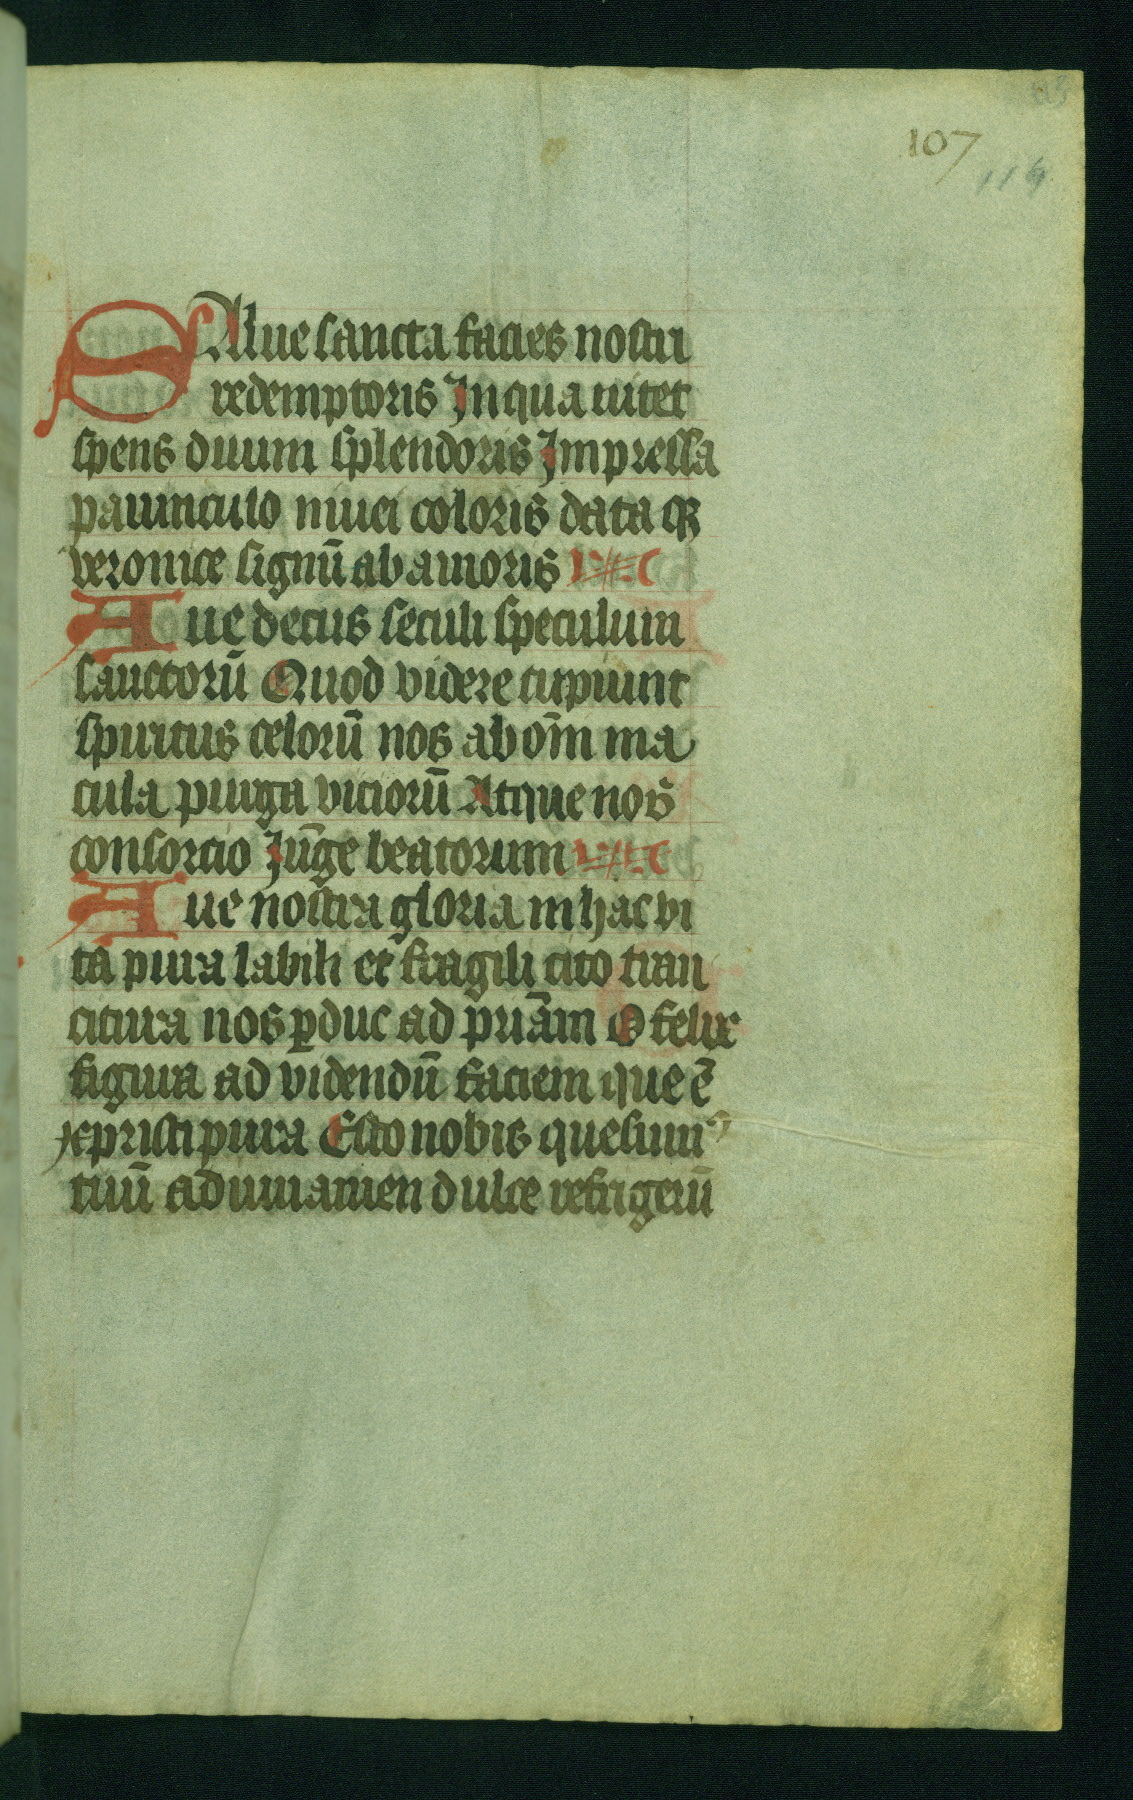 107
SAlue sancta facies nostri
redemptoris In qua nitet
spens diuum splendoris Impressa
paniniculo niuei coloris data q3
veronice signū ab amoris
Aue decus seculi speculum
sanctorū Quod videre cupiunt
spiritus celorū nos ab om̄i ma
cula purga viciorū Atque nos
consorcio Jūge beatorum
Aue nostra gloria in hac vi
ta pura labili et fragili cito tran
citura nos ꝑduc ad priām O felix
figura ad videndū faciem que ē
xpristi pura Esto nobis quesumꝰ
tutū adiuuamen dulce refrigeriū